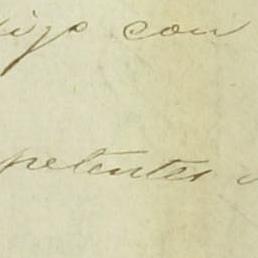 igo con
petentes